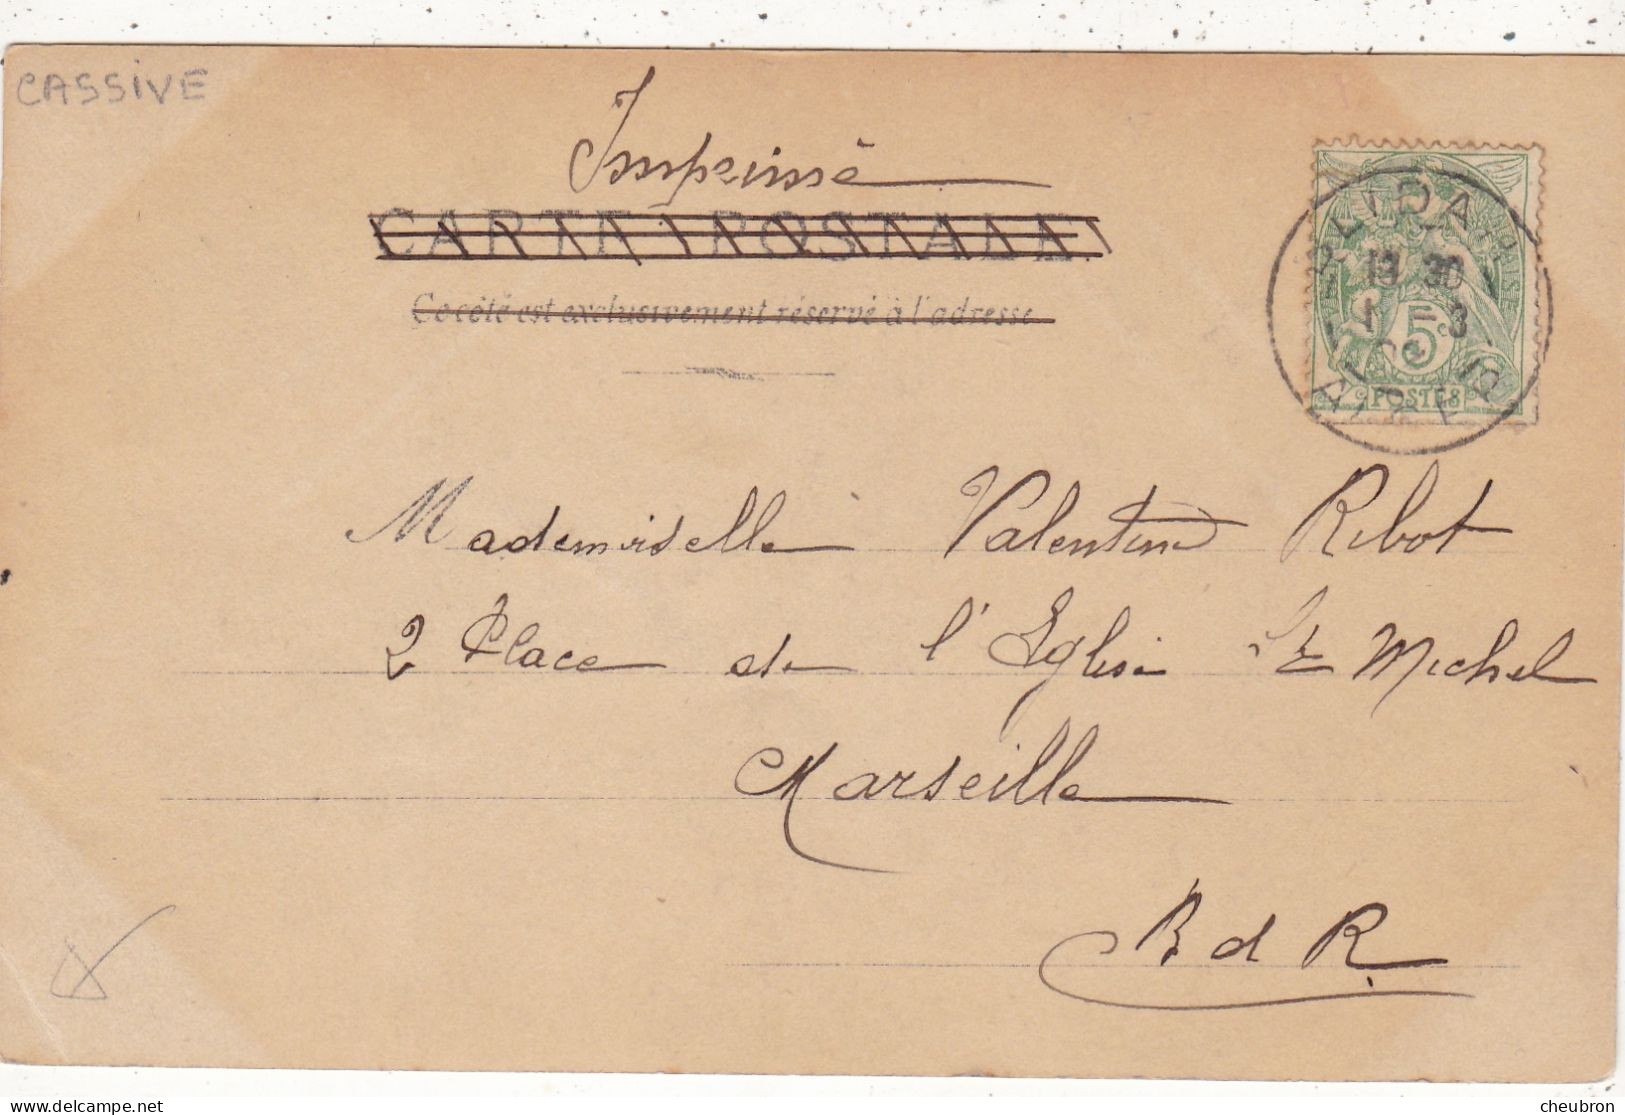 CASSIVE
Imprimé
CARTE POSTALE
Ce côté est exclusivement réservé à l'adresse
BLIDAH
19 30
1 - 3
ALGER
5c
POSTES
Mademoiselle Valentine Ribot
2 Place de l'Eglise St Michel
Marseille
B d R
www.delcampe.net
cheubron